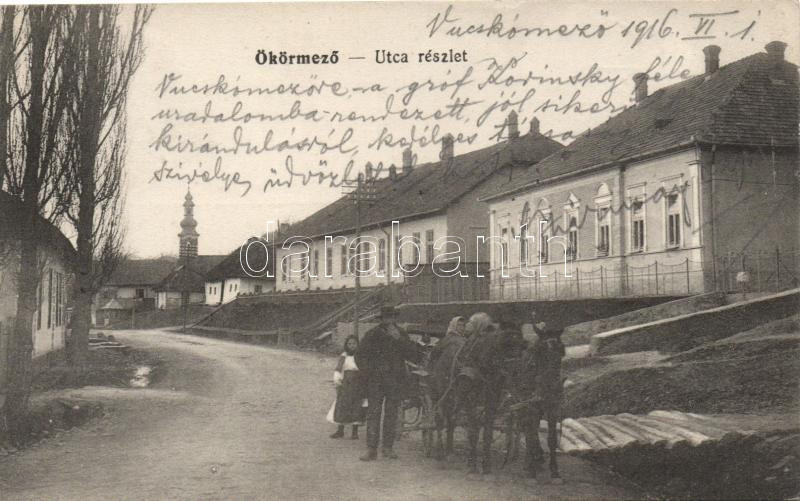 Vucskómező 1916. VI. 1.
Ökörmező — Utca részlet
Vucskómezőre - a gróf Korinsky féle
uradalomba - rendezett, jól sikerü
kirándulásról, kedélyes
szivélye, üdvözlet
darabanth